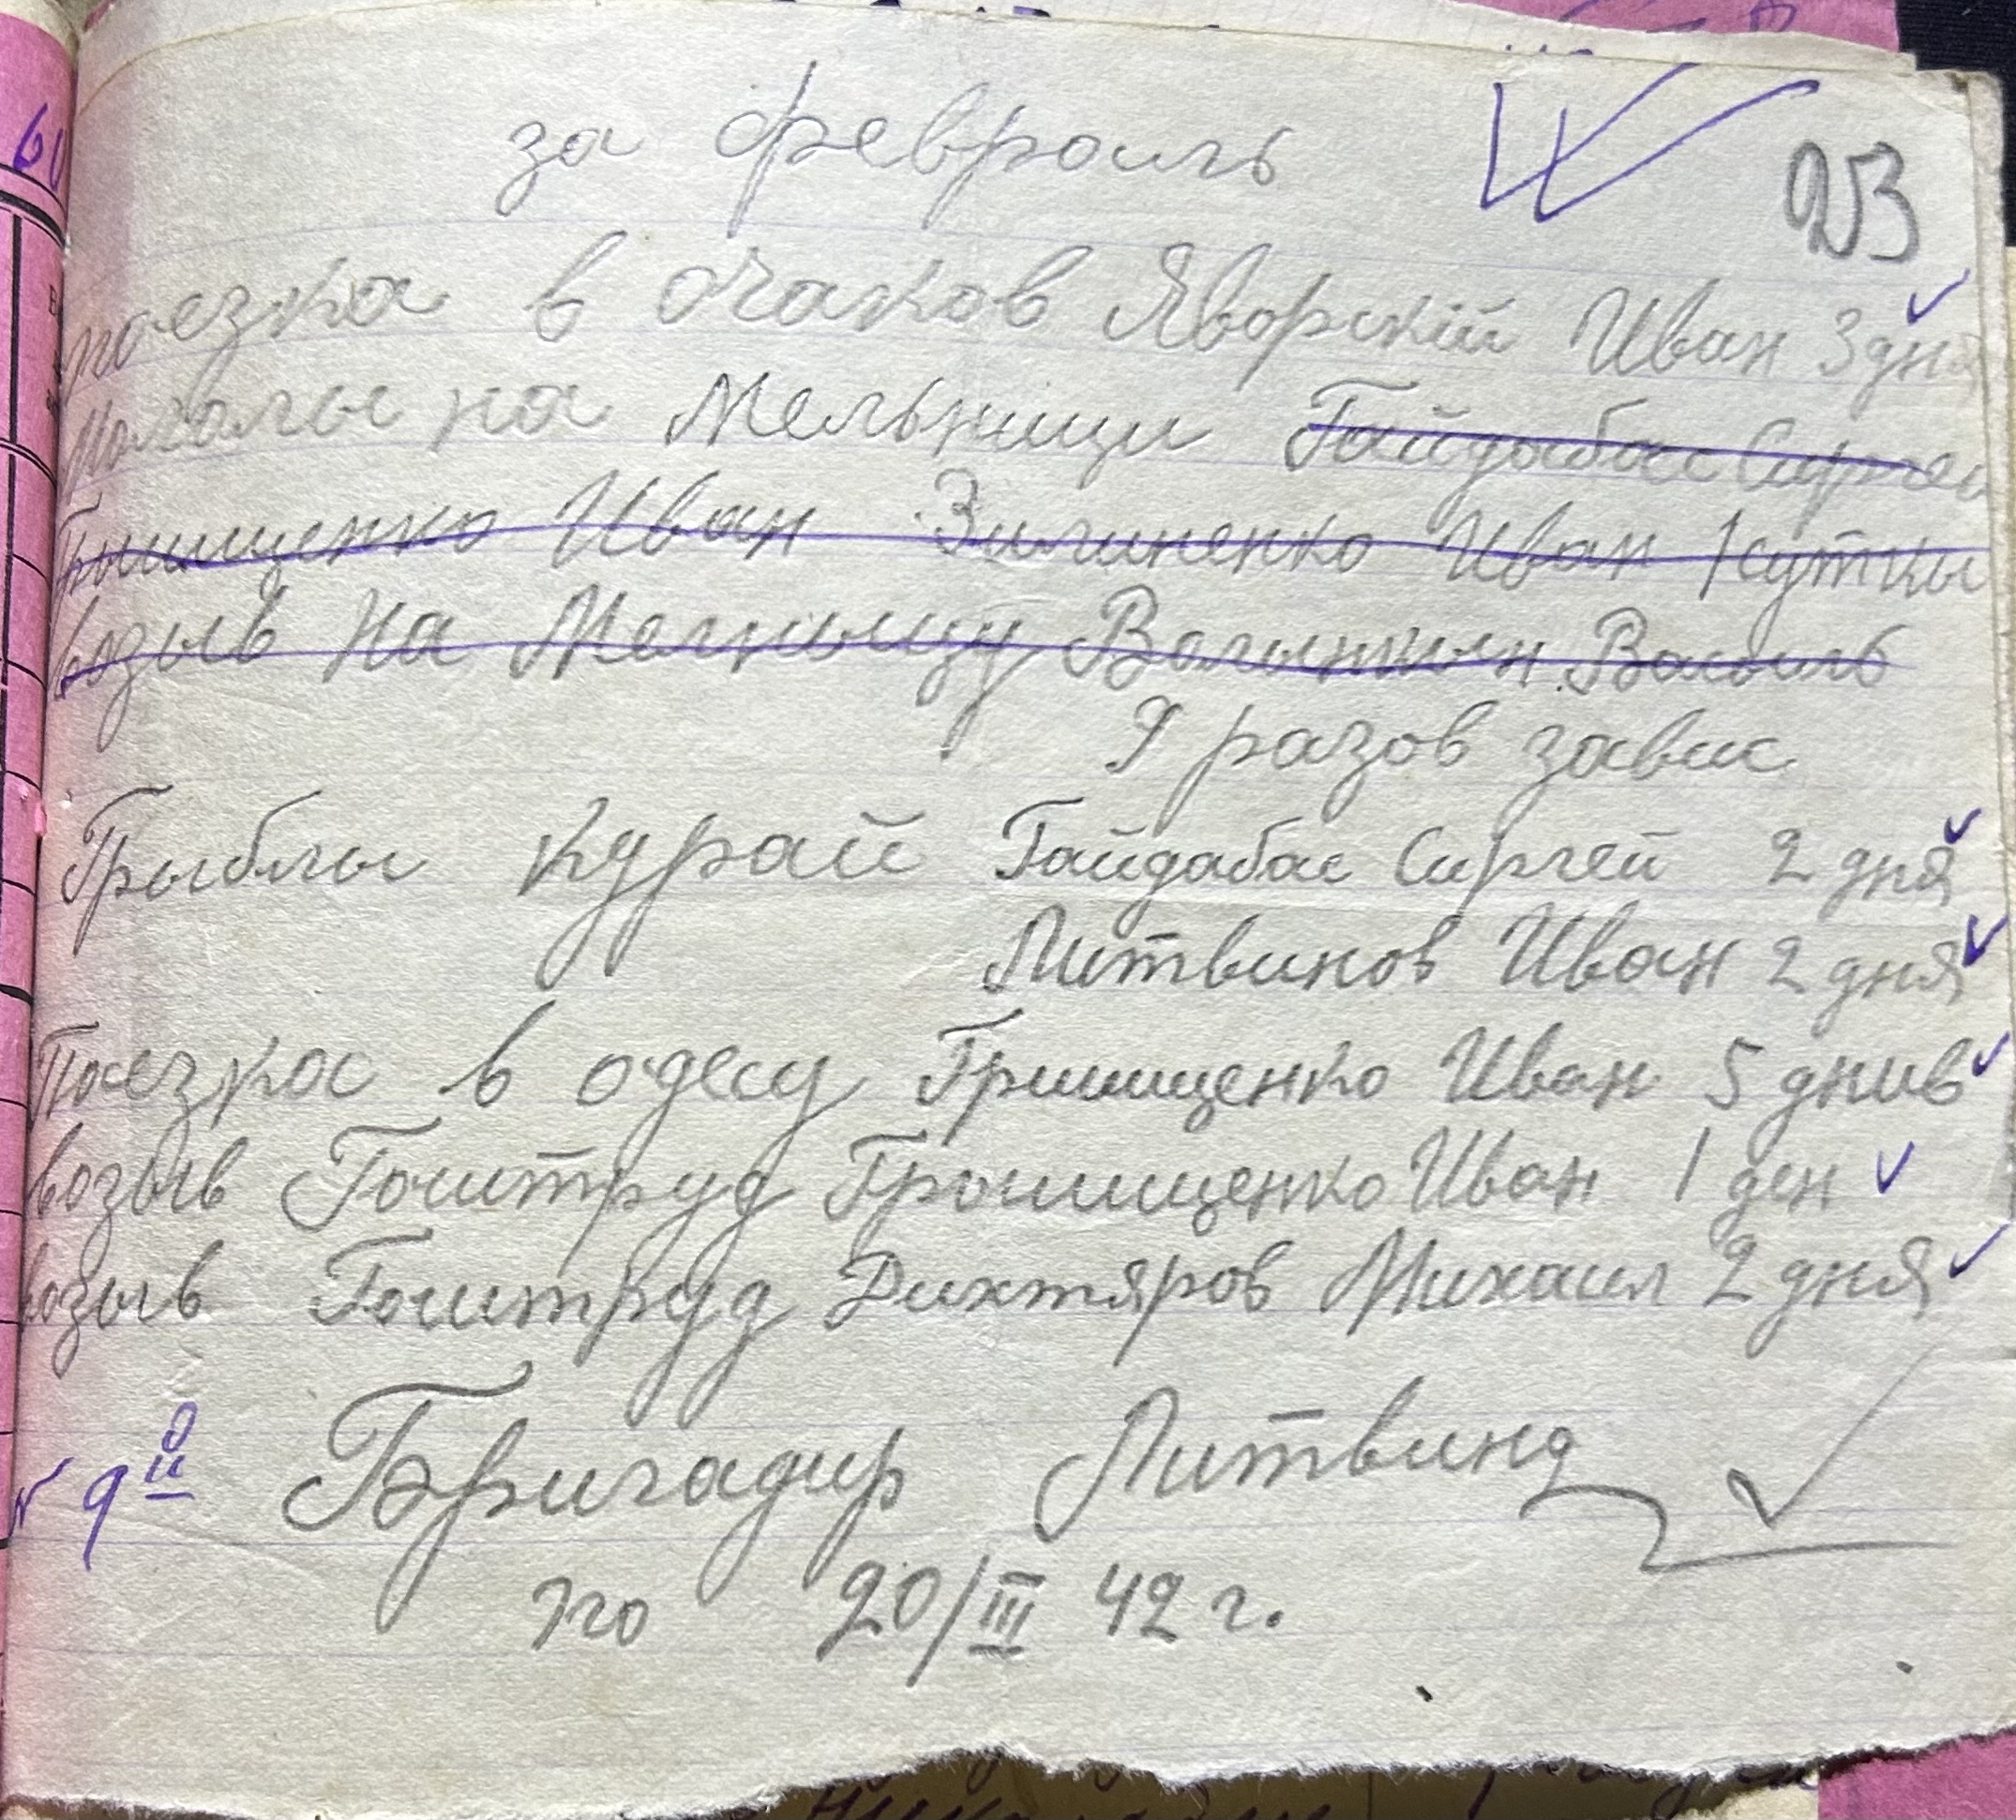 за февраль
23
поезка в очаков Яворский Иван 3 дня
Мололы на Мельници Гайдабас Сиргей
Грищенко Иван Зинченко Иван 1 сутки
возыв на Мелныцу Василь
9 разов завис
Грыблы курай Гайдабас Сиргей 2 дня
Литвинов Иван 2 дня
Поезка в одесу Грищенко Иван 5 днив
возыв Гоштруд Грищенко Иван 1 ден
возыв Гоштруд Дихтяров Михаил 2 дня
Бригадир Литвин
по 20/III 42 г.